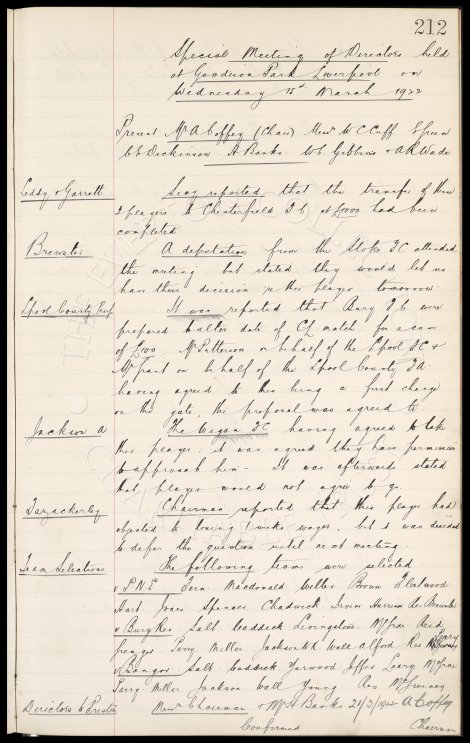 212
Special Meeting of Directors held
at Goodison Park Liverpool on
Wednesday 15th March 1922
Present Mr A Coffey (Chair) Messrs W C Cuff B Green
C E Dickinson H Banks W C Gibbins & A R Wade
Eddy & Garrett Secy reported that the transfer of these
2 players to Chesterfield F.C. at £1000 had been
completed
Brewster A deputation from the Stoke FC attended
the meeting, but stated they would let us
have their decision re this player tomorrow.
Lpool County Cup It was reported that Bury F.C. were
prepared to alter date of CL match for a sum
of £100. Mr Patterson on behalf of the Lpool FC &
Mr Grant on behalf of the Lpool County FA
having agreed to this being a first charge
on the gate, the proposal was agreed to.
Jackson A The Wigan FC having agreed to take
this player, it was agreed they have permission
to approach him - It was afterwards stated
that player would not agree to go.
Tarzackerley Chairman reported that this player had
objected to losing 1 weeks wages, but it was decided
to defer the question until next meeting.
Team Selections The following teams were selected
v P.N.E. Fern Macdonald Brown Fleetwood
Hart Jones Spencer Chadwick Irvine Harrison Res Brewster
v Bury Res. Salt Caddick Livingstone McGrae Reid
Grenyer Parry Miller Jackworth Wall Alford Res
v Bangor. Salt Caddick Yarwood Jeffes Leary McGrae
Parry Miller Jackson Wall Young Res
Directors to Preston Messrs Chairman & Mr H Banks 21/3/1922 A Coffey
Confirmed Chairman